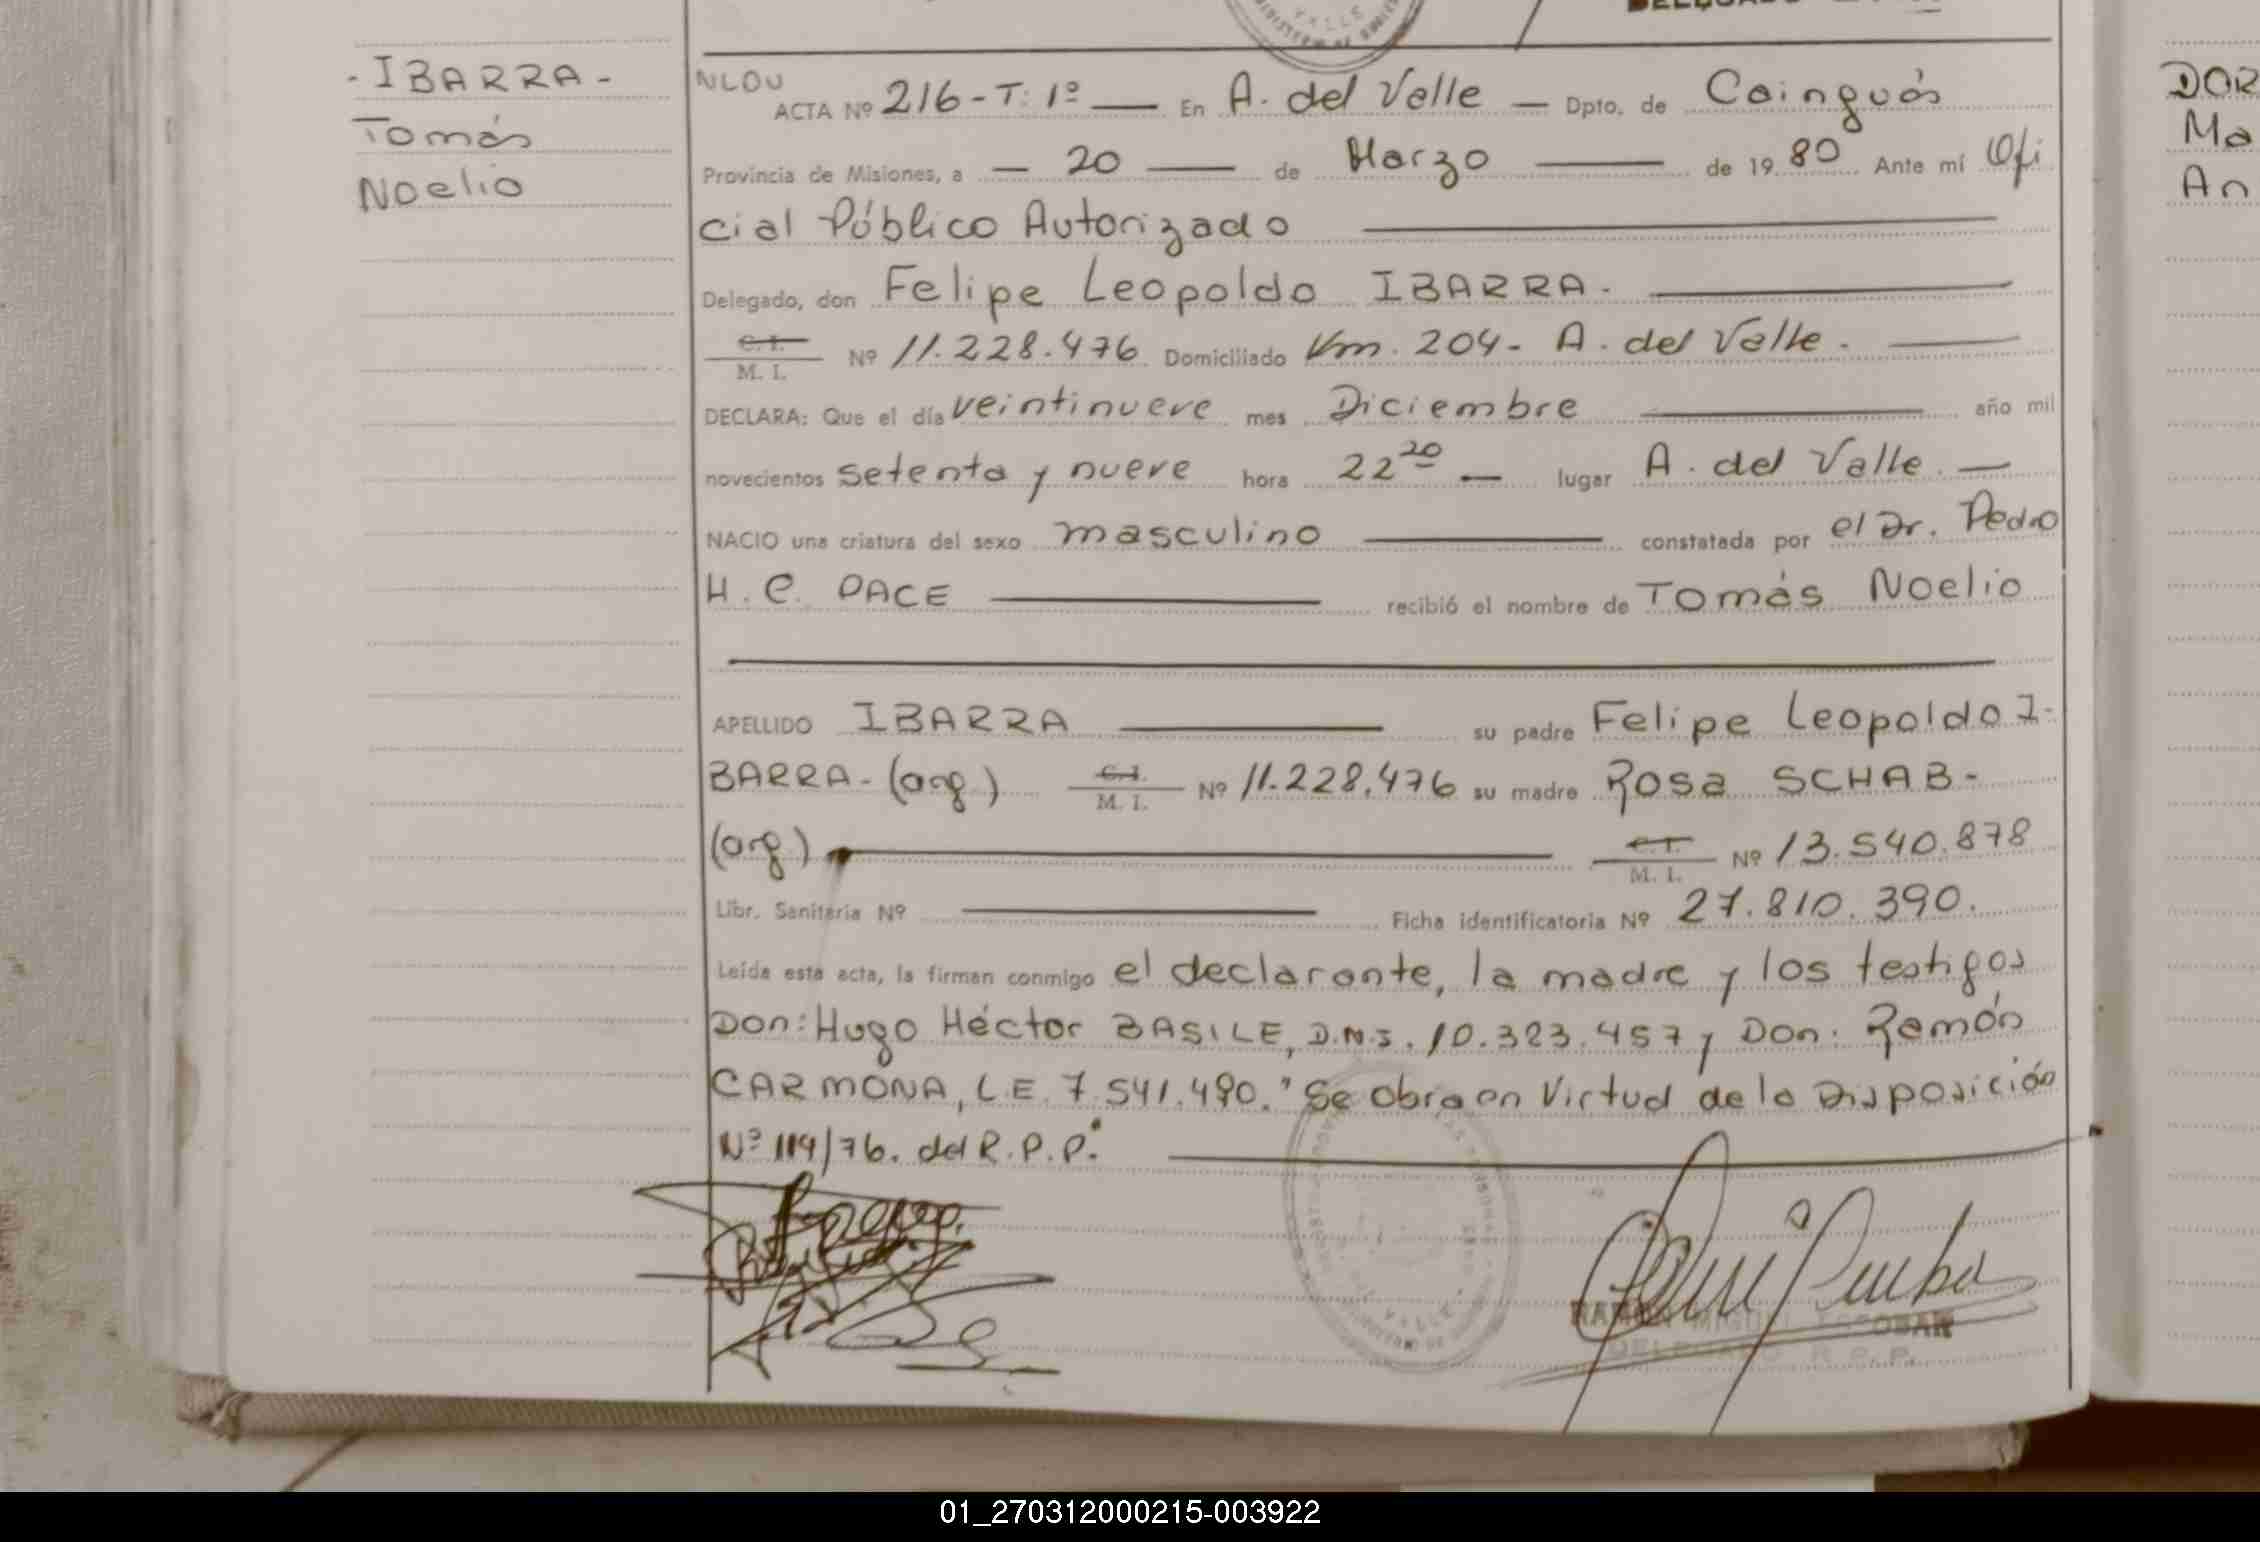 - IBARRA -
Tomás
Noelio
NLOU
ACTA Nº 216 - T: 1º — En A. del Valle — Dpto. de Cainguás
Provincia de Misiones, a — 20 — de Marzo — de 19 80 Ante mí Ofi
cial Público Autorizado
Delegado, don Felipe Leopoldo IBARRA.
C. I.
M. I. Nº 11.228.476 Domiciliado Km. 204 - A. del Valle.
DECLARA: Que el día veintinueve mes Diciembre — año mil
novecientos setenta y nueve hora 22 20 — lugar A. del Valle. —
NACIO una criatura del sexo masculino — constatada por el Dr. Pedro
H. C. PACE — recibió el nombre de Tomás Noelio
APELLIDO IBARRA — su padre Felipe Leopoldo I-
BARRA - (arg.) C. I. M. I. Nº 11.228.476 su madre Rosa SCHAB -
(arg.) — C. I. M. I. Nº 13.540.878
Libr. Sanitaria Nº — Ficha identificatoria Nº 27.810.390.
Leída esta acta, la firman conmigo el declarante, la madre y los testigos
Don: Hugo Héctor BASILE, D.N.I. 10.323.457 y Don: Ramón
CARMONA, L.E. 7.541.490. "Se obra en Virtud de la Disposición
Nº 114/76. del R.P.P."
RAMON MIGUEL ESCOBAR
DELEGADO R.P.P.
DOR
Ma
An
01_270312000215-003922